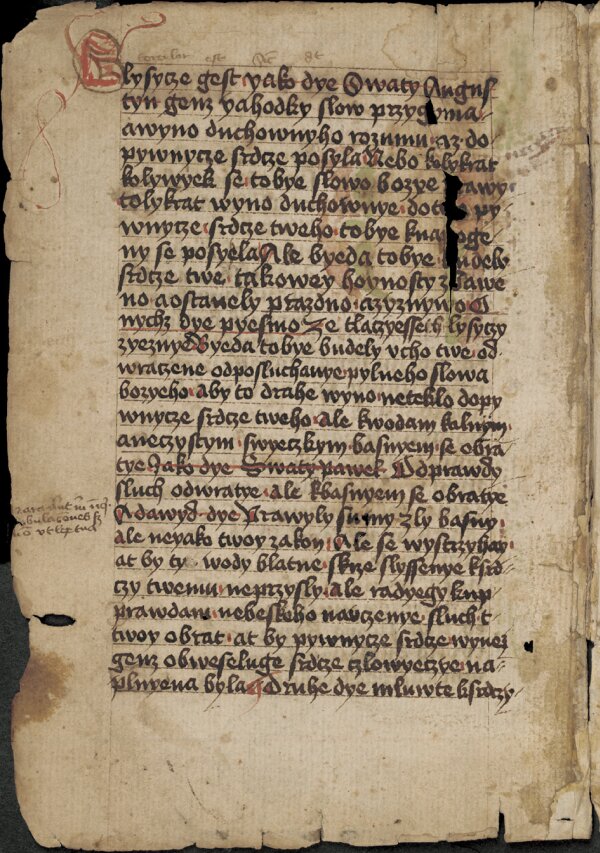 lysycze gest yako dye Swaty Augus
tyn genz yahodky slow przygyma
awyno duchownyho rozumu az do
pywnycze srdcze posyla Nebo kolykrat
kolywyek se tobye slowo bozye prawy
tolykrat wyno duchownye do py
wnycze srdcze tweho tobye
ny se posyela Ale byeda tobye budely
srdcze twe takowey hoynosty zlawe
no aostanely prazdno
nychz dye pyesmo Ze tlaczyessech lysyczy
zyeznye Byeda tobye budely vcho twe od
wraczene odposluchanye pylneho slowa
bozyeho aby to drahe wyno neteklo dopy
wnycze srdcze tweho Ale kwodam kalnym
aneczystym swyeczkym basnyem se obra
tye Jako dye Swaty pawel Odprawdy
sluch odwratye Ale kbasnyem se obratye
A dawyd dye Prawyly su my zly basny
ale neyako twoy zakon Ale se wystrzyhay
at by ty wody blatne skrze slyssenye ksrd
czy twemu neprzysly Ale radyegy knp
prawdam nebeskeho nauczenye sluch t
twoy obrat at by pywnycze srdcze wynez
genz obweseluge srdcze czlowyeczye na
plnyena byla Druhe dye mluwte ksrdczy